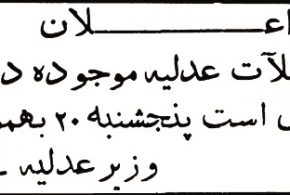 اعـــــــــلان
لآت عدلیه موجوده د
است پنجشنبه ۲۰ بهم
وزیر عدلیه